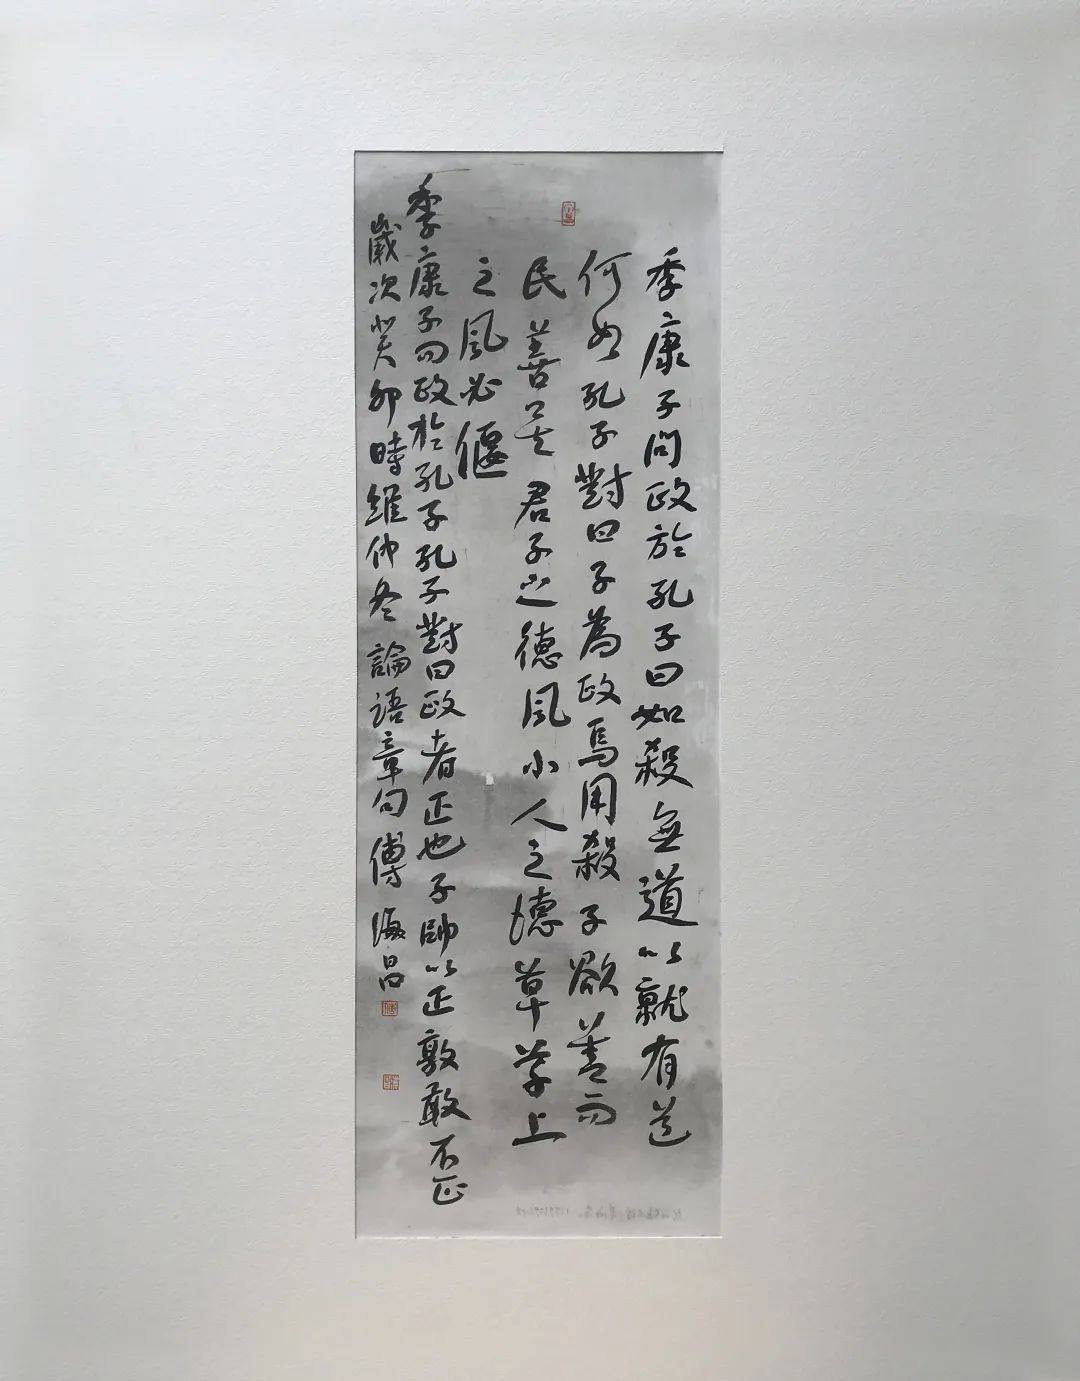 季康子問政於孔子曰如殺無道以就有道
何如孔子對曰子為政焉用殺子欲善而
民善矣君子之德風小人之德草草上
之風必偃
季康子問政於孔子孔子對曰政者正也子帥以正孰敢不正
歲次癸卯時維仲冬論語章句傅海昌